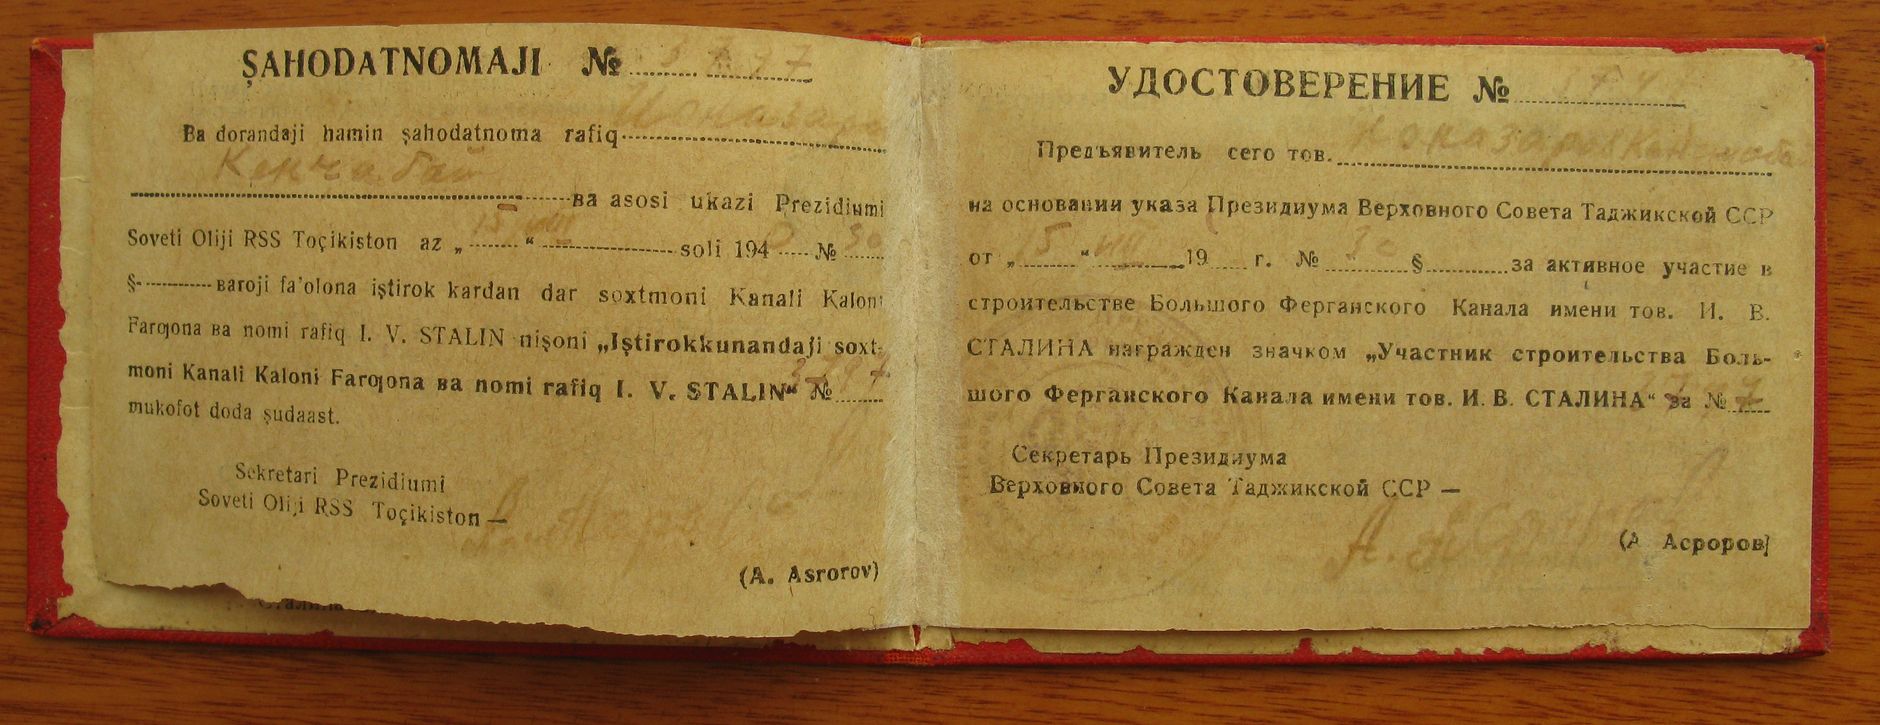 ŞAHODATNOMAJI №
Ba dorandaji hamin şahodatnoma rafiq
Кенчабай
ʙa asosi ukazi Prezidiumi
Soveti Oliji RSS Toçikiston az „15 VIII“ soli 1940 № 30
§ ʙaroji fa'olona iştirok kardan dar soxtmoni Kanali Kaloni
Farƣona ʙa nomi rafiq I. V. STALIN nişoni „Iştirokkunandaji soxt-
moni Kanali Kaloni Farƣona ʙa nomi rafiq I. V. STALIN“ №
mukofot doda şudaast.
Sekretari Prezidiumi
Soveti Oliji RSS Toçikiston —
(A. Asrorov)
Сталина
УДОСТОВЕРЕНИЕ №
Предъявитель сего тов.
на основании указа Президиума Верховного Совета Таджикской ССР
от „ “ 19 г. № § за активное участие в
строительстве Большого Ферганского Канала имени тов. И. В.
СТАЛИНА награжден значком „Участник строительства Боль-
шого Ферганского Канала имени тов. И. В. СТАЛИНА“ за №
Секретарь Президиума
Верховного Совета Таджикской ССР —
(А Асроров)